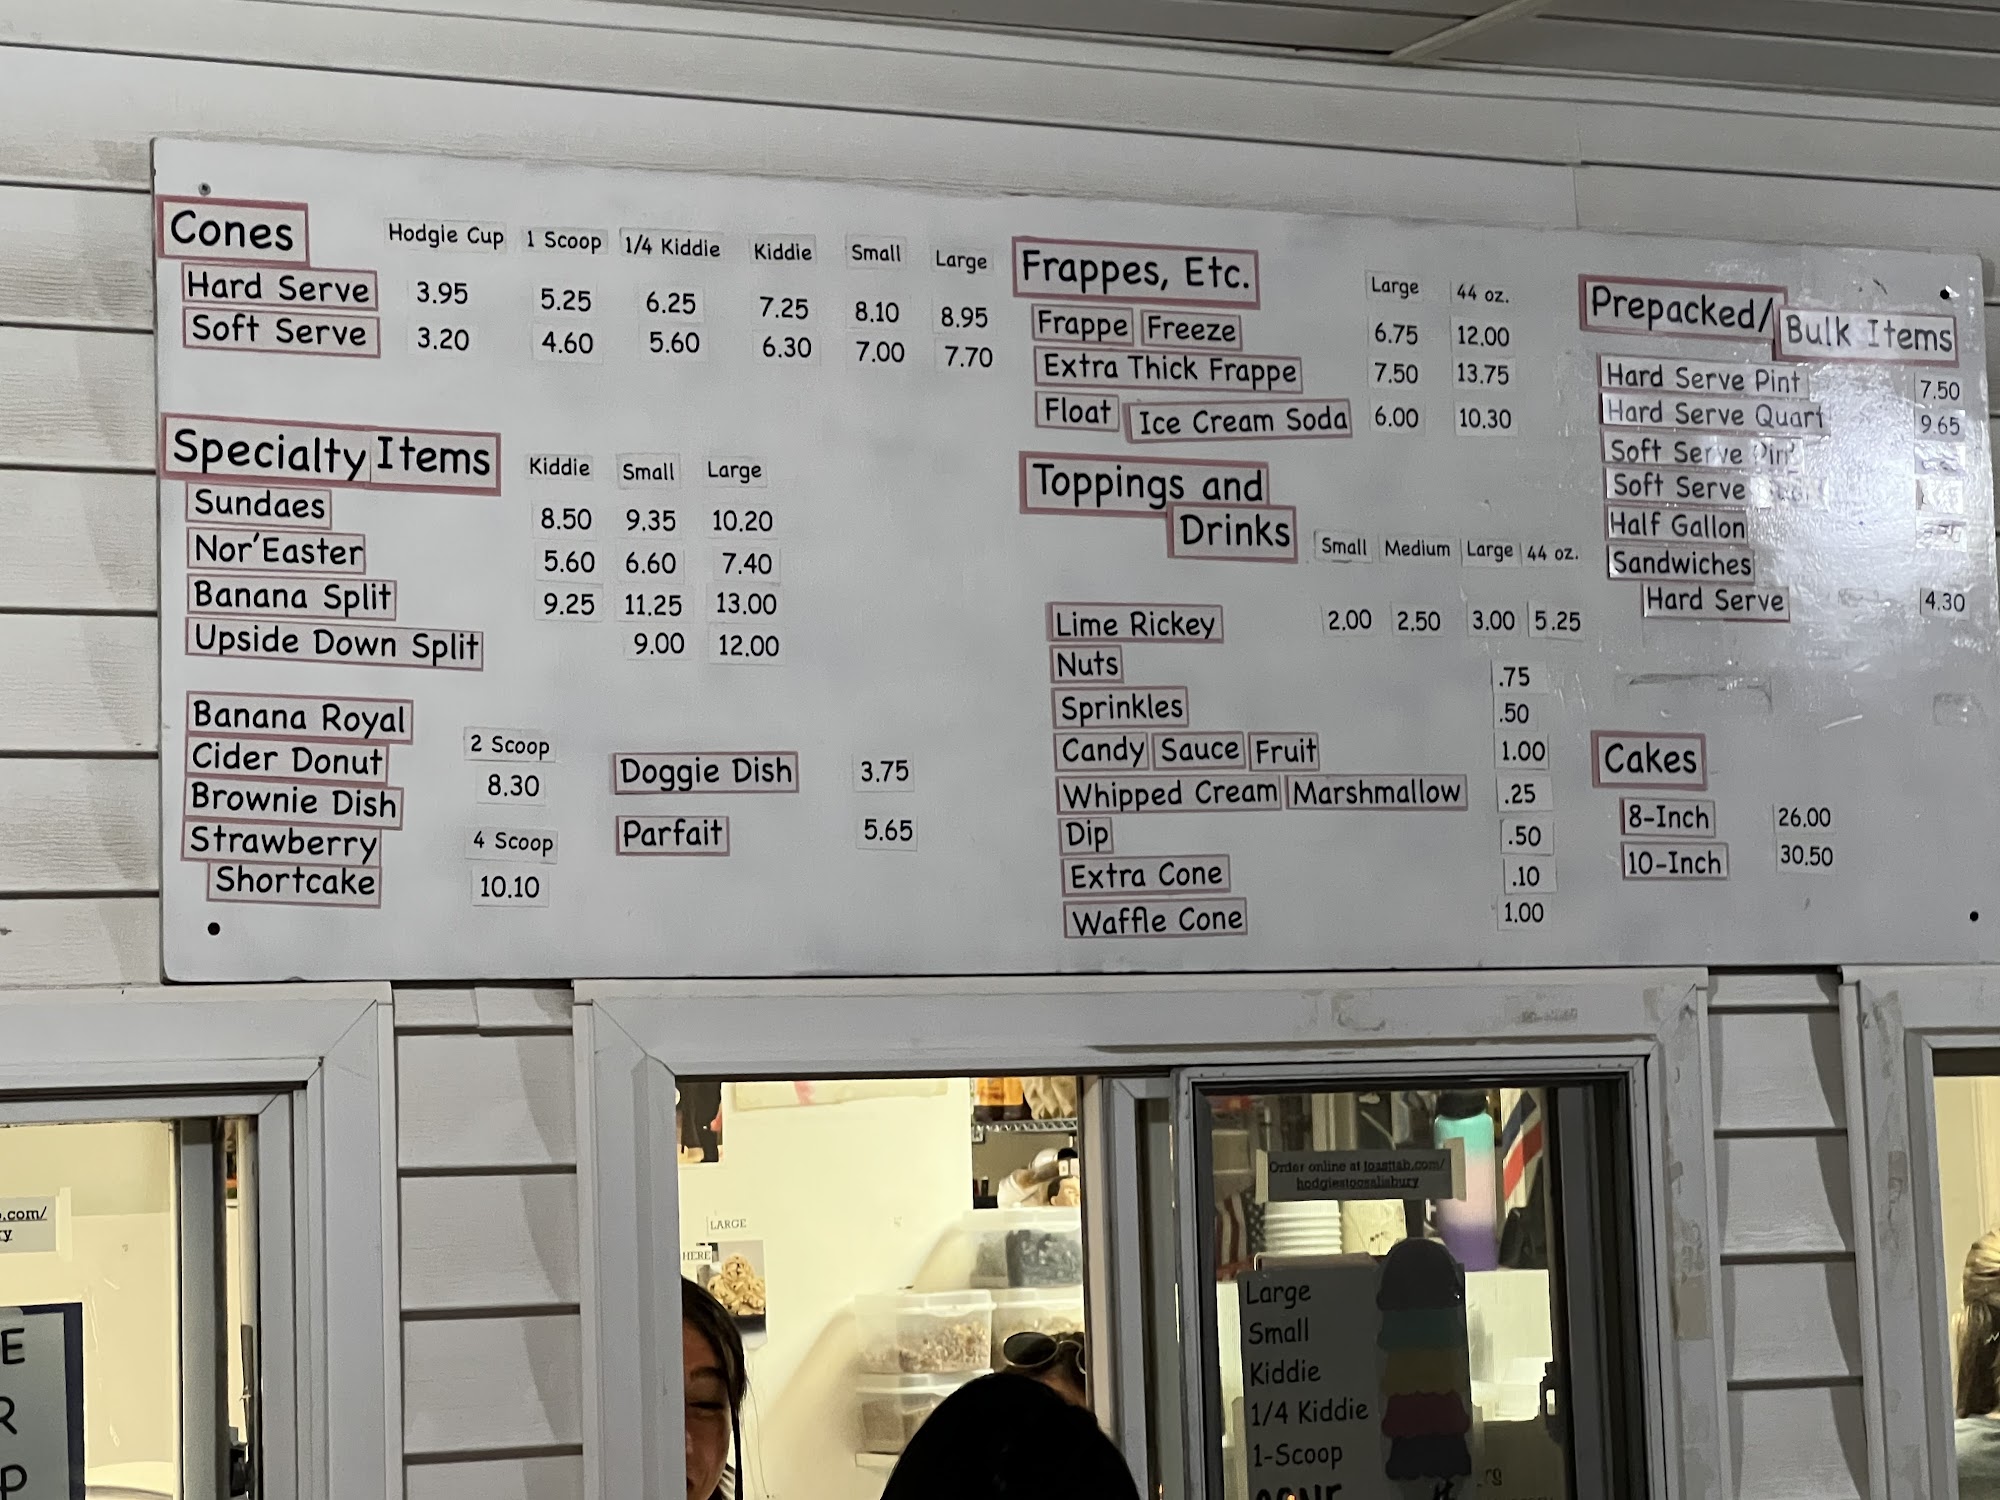 Cones Hodgie Cup 1 Scoop 1/4 Kiddie Kiddie Small Large
Hard Serve 3.95 5.25 6.25 7.25 8.10 8.95
Soft Serve 3.20 4.60 5.60 6.30 7.00 7.70
Specialty Items Kiddie Small Large
Sundaes 8.50 9.35 10.20
Nor'Easter 5.60 6.60 7.40
Banana Split 9.25 11.25 13.00
Upside Down Split 9.00 12.00
Banana Royal
Cider Donut
Brownie Dish
Strawberry
Shortcake
2 Scoop
8.30
4 Scoop
10.10
Doggie Dish 3.75
Parfait 5.65
Frappes, Etc. Large 44 oz.
Frappe Freeze 6.75 12.00
Extra Thick Frappe 7.50 13.75
Float Ice Cream Soda 6.00 10.30
Toppings and
Drinks Small Medium Large 44 oz.
Lime Rickey 2.00 2.50 3.00 5.25
Nuts .75
Sprinkles .50
Candy Sauce Fruit 1.00
Whipped Cream Marshmallow .25
Dip .50
Extra Cone .10
Waffle Cone 1.00
Prepacked/
Bulk Items
Hard Serve Pint 7.50
Hard Serve Quart 9.65
Soft Serve Pint
Soft Serve
Half Gallon
Sandwiches
Hard Serve 4.30
Cakes
8-Inch 26.00
10-Inch 30.50
.com/
y
E
R
P
LARGE
HERE
Order online at toasttab.com/
hodgiestoosalisbury
Large
Small
Kiddie
1/4 Kiddie
1-Scoop